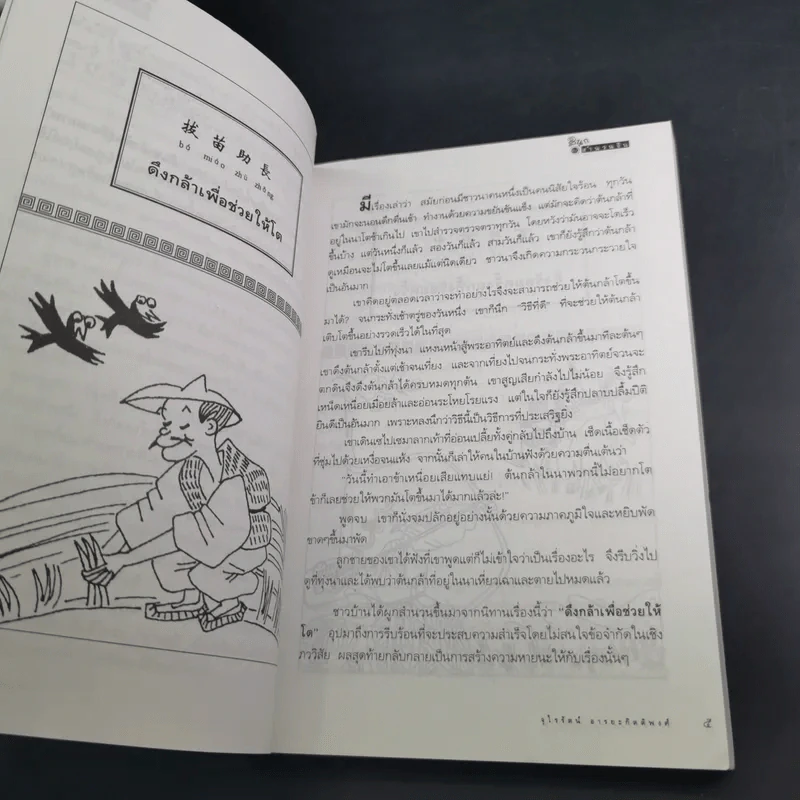 拔苗助長
bá miáo zhù zhǎng
ดึงกล้าเพื่อช่วยให้โต
มีเรื่องเล่าว่า สมัยก่อนมีชาวนาคนหนึ่งเป็นคนนิสัยใจร้อน ทุกวัน
เขามักจะนอนดึกตื่นเช้า ทำงานด้วยความขยันขันแข็ง แต่มักจะคิดว่าต้นกล้าที่
อยู่ในนาโตช้าเกินไป เขาไปสำรวจตรวจตราทุกวัน โดยหวังว่ามันอาจจะโตเร็ว
ขึ้นบ้าง แต่วันหนึ่งก็แล้ว สองวันก็แล้ว สามวันก็แล้ว เขาก็ยังรู้สึกว่าต้นกล้า
ดูเหมือนจะไม่โตขึ้นเลยแม้แต่นิดเดียว ชาวนาจึงเกิดความกระวนกระวายใจ
เป็นอันมาก
เขาคิดอยู่ตลอดเวลาว่าจะทำอย่างไรจึงจะสามารถช่วยให้ต้นกล้าโตขึ้น
มาได้? จนกระทั่งเช้าตรู่ของวันหนึ่ง เขาก็นึก "วิธีที่ดี" ที่จะช่วยให้ต้นกล้า
เติบโตขึ้นอย่างรวดเร็วได้ในที่สุด
เขารีบไปที่ทุ่งนา แหงนหน้าสู้พระอาทิตย์และดึงต้นกล้าขึ้นมาทีละต้นๆ
เขาดึงต้นกล้าตั้งแต่เช้าจนเที่ยง และจากเที่ยงไปจนกระทั่งพระอาทิตย์จวนจะ
ตกดินจึงดึงต้นกล้าได้ครบหมดทุกต้น เขาสูญเสียกำลังไปไม่น้อย จึงรู้สึก
เหน็ดเหนื่อยเมื่อยล้าและอ่อนระโหยโรยแรง แต่ในใจก็ยังรู้สึกปลาบปลื้มปิติ
ยินดีเป็นอันมาก เพราะหลงนึกว่าวิธีนี้เป็นวิธีการที่ประเสริฐยิ่ง
เขาเดินเซไปเซมาลากเท้าที่อ่อนเปลี้ยทั้งคู่กลับไปถึงบ้าน เช็ดเนื้อเช็ดตัว
ที่ชุ่มไปด้วยเหงื่อจนแห้ง จากนั้นก็เล่าให้คนในบ้านฟังด้วยความตื่นเต้นว่า
"วันนี้ทำเอาข้าเหนื่อยเสียแทบแย่! ต้นกล้าในนาพวกนี้ไม่อยากโต
ข้าก็เลยช่วยให้พวกมันโตขึ้นมาได้มากแล้วล่ะ!"
พูดจบ เขาก็นั่งจมปลักอยู่อย่างนั้นด้วยความภาคภูมิใจและหยิบพัด
ขาดๆขึ้นมาพัด
ลูกชายของเขาได้ฟังที่เขาพูดแต่ก็ไม่เข้าใจว่าเป็นเรื่องอะไร จึงรีบวิ่งไป
ดูที่ทุ่งนาและได้พบว่าต้นกล้าที่อยู่ในนาเหี่ยวเฉาและตายไปหมดแล้ว
ชาวบ้านได้ผูกสำนวนขึ้นมาจากนิทานเรื่องนี้ว่า "ดึงกล้าเพื่อช่วยให้
โต" อุปมาถึงการรีบร้อนที่จะประสบความสำเร็จโดยไม่สนใจข้อจำกัดในเชิง
ภววิสัย ผลสุดท้ายกลับกลายเป็นการสร้างความหายนะให้กับเรื่องนั้นๆ
จุไรรัตน์ อารยะกิตติพงศ์ ๕